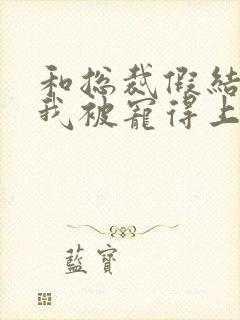 和总裁假结
我被宠得上
蓝宝